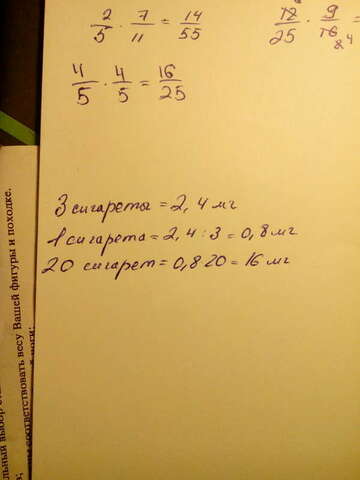 2/5 · 7/11 = 14/55
12/25 · 9/16 =
4/5 · 4/5 = 16/25
3 сигареты = 2,4 мг
1 сигарета = 2,4 : 3 = 0,8 мг
20 сигарет = 0,8·20 = 16 мг
соответствовать весу Вашей фигуры и походке.